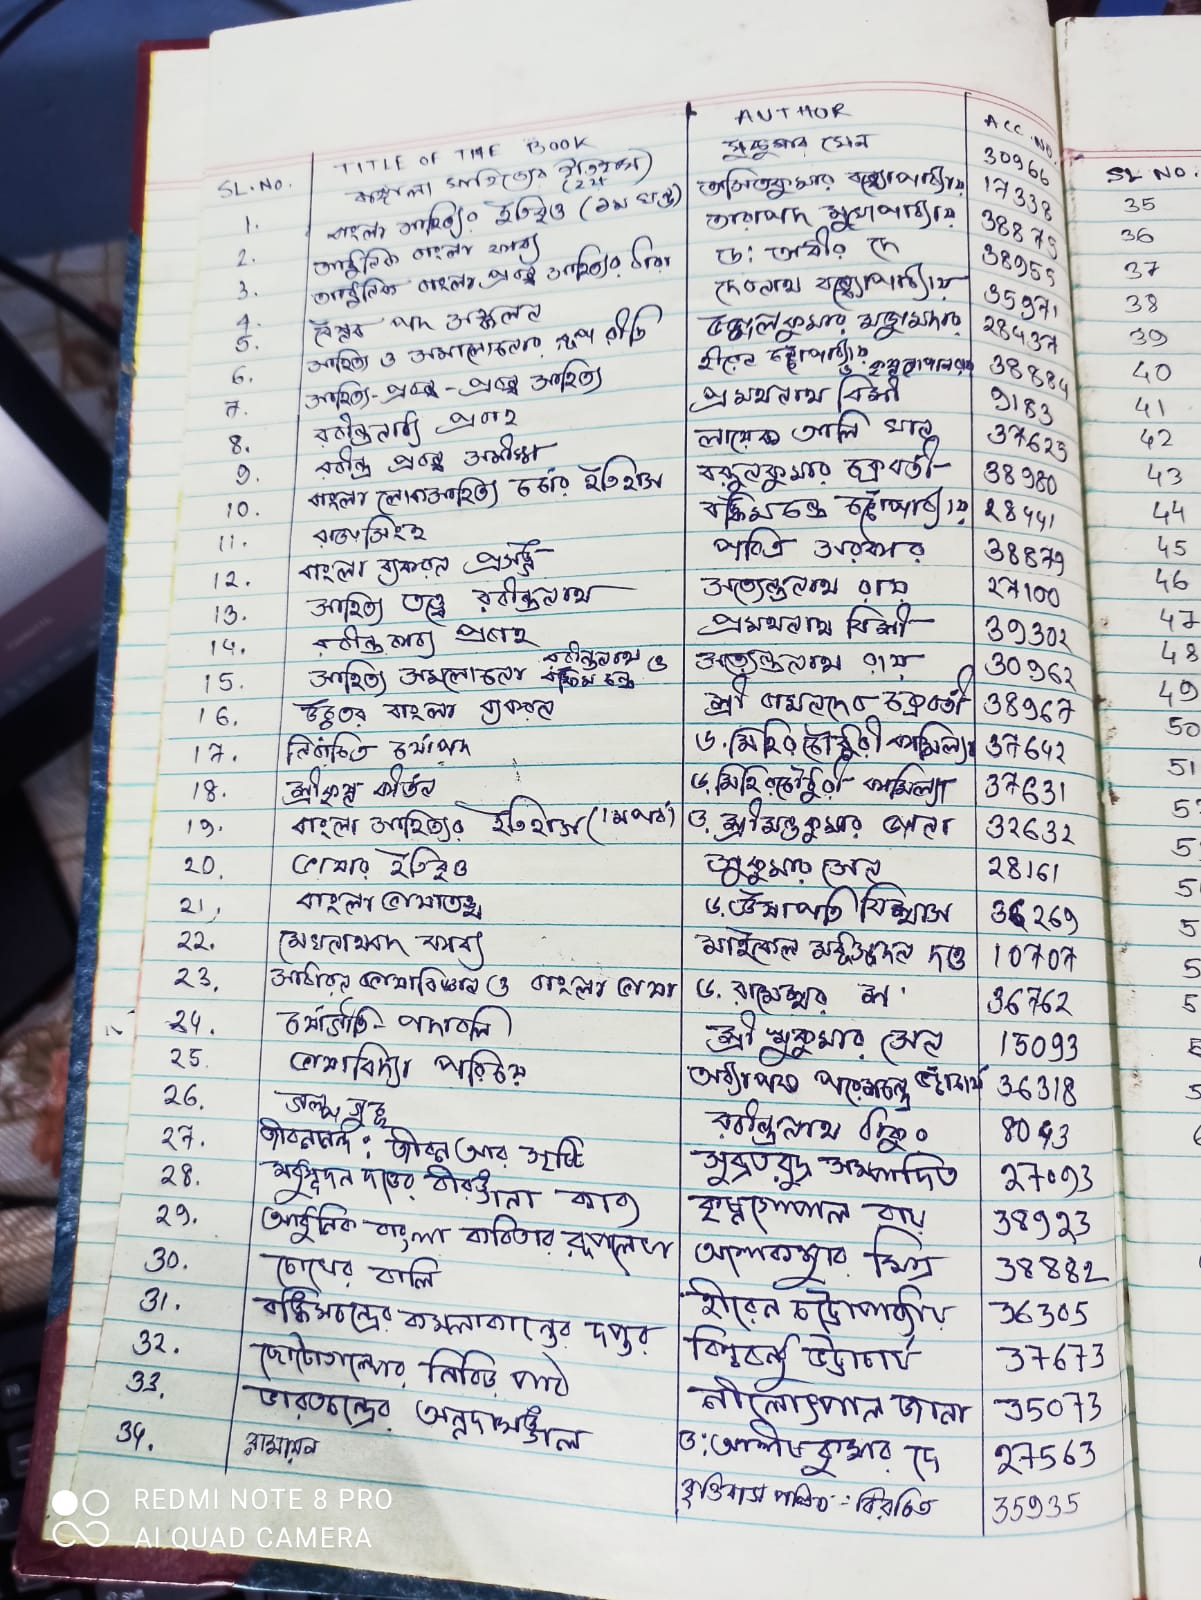 SL. NO. TITLE OF THE BOOK AUTHOR ACC. NO.
1. বাঙ্গালা সাহিত্যের ইতিহাস সুকুমার সেন 30966
2. বাংলা সাহিত্যের ইতিবৃত্ত (১ম খণ্ড) অসিতকুমার বন্দ্যোপাধ্যায় 17338
3. আধুনিক বাংলা কাব্য তারাপদ মুখোপাধ্যায় 38875
4. আধুনিক বাংলা প্রবন্ধ সাহিত্যের ধারা ড: অধীর দে 38955
5. বৈষ্ণব পদ সঙ্কলন দেবনাথ বন্দ্যোপাধ্যায় 35971
6. সাহিত্য ও সমালোচনার রূপ রীতি উজ্জ্বলকুমার মজুমদার 28437
7. সাহিত্য-প্রবন্ধ-প্রবন্ধ সাহিত্য হীরেন চট্টোপাধ্যায় ও কৃষ্ণগোপাল রায় 38884
8. রবীন্দ্রনাট্য প্রবাহ প্রমথনাথ বিশী 9183
9. রবীন্দ্র প্রবন্ধ সমীক্ষা লায়েক আলি খান 37625
10. বাংলা লোকসাহিত্য চর্চার ইতিহাস বরুনকুমার চক্রবর্তী 38980
11. রাজসিংহ বঙ্কিমচন্দ্র চট্টোপাধ্যায় 28441
12. বাংলা ব্যকরন প্রসঙ্গ পবিত্র সরকার 38879
13. সাহিত্য তত্ত্বে রবীন্দ্রনাথ সত্যেন্দ্রনাথ রায় 27100
14. রবীন্দ্রকাব্য প্রবাহ প্রমথনাথ বিশী 39302
15. সাহিত্য সমালোচনা রবীন্দ্রনাথ ও বঙ্কিম চন্দ্র সত্যেন্দ্রনাথ রায় 30962
16. উচ্চতর বাংলা ব্যকরন শ্রী বামনদেব চক্রবর্তী 38967
17. নির্বাচিত চর্যাপদ ড. মিহির চৌধুরী কামিল্যা 37642
18. শ্রীকৃষ্ণ কীর্তন ড. মিহির চৌধুরী কামিল্যা 37631
19. বাংলা সাহিত্যের ইতিহাস (১ম পর্ব) ড. শ্রীমন্তকুমার জানা 32632
20. ভাষার ইতিবৃত্ত সুকুমার সেন 28161
21. বাংলা ভাষাতত্ত্ব ড. ঊষাপতি বিশ্বাস 36269
22. মেঘনাথবদ কাব্য মাইকেল মধুসূদন দত্ত 10707
23. সাধারন ভাষাবিজ্ঞান ও বাংলা ভাষা ড. রামেশ্বর শ' 36762
24. চর্যাগীতি-পদাবলি শ্রী সুকুমার সেন 15093
25. ভাষাবিদ্যা পরিচয় অধ্যাপক পরেশচন্দ্র ভট্টাচার্য 36318
26. গল্প গুচ্ছ রবীন্দ্রনাথ ঠাকুর 8043
27. জীবনানন্দ: জীবন আর সৃষ্টি সুব্রত রুদ্র সম্পাদিত 27093
28. মধুসূদন দত্তের বীরাঙ্গনা কাব্য কৃষ্ণগোপাল রায় 38923
29. আধুনিক বাংলা কবিতার রূপলেখা অশোককুমার মিশ্র 38882
30. চোখের বালি হীরেন চট্টোপাধ্যায় 36305
31. বঙ্কিমচন্দ্রের কমলাকান্তের দপ্তর বিশ্ববন্ধু ভট্টাচার্য 37673
32. ছোটোগল্পের নিবিড় পাঠ নীলোৎপল জানা 35073
33. ভারতচন্দ্রের অন্নদামঙ্গল ড: আশীষ কুমার দে 27563
34. রামায়ন কৃত্তিবাস পণ্ডিত বিরচিত 35935
SL NO.
35
36
37
38
39
40
41
42
43
44
45
46
47
48
49
50
51
REDMI NOTE 8 PRO
AI QUAD CAMERA